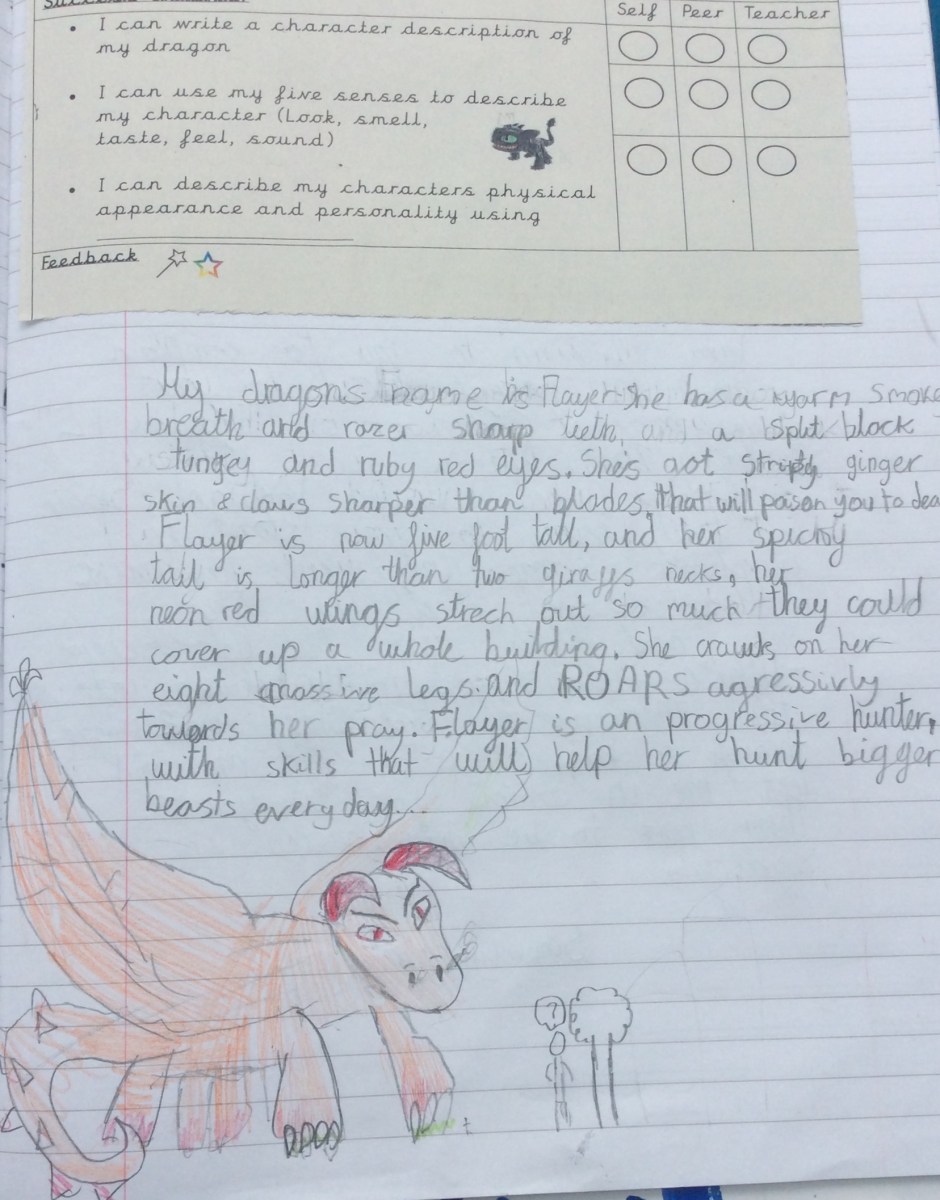 Self Peer Teacher
• I can write a character description of
my dragon
• I can use my five senses to describe
my character (Look, smell,
taste, feel, sound)
• I can describe my characters physical
appearance and personality using
Feedback
My dragons name is Flayer She has a warm smoke
breath and razer sharp teeth, a split block
tungey and ruby red eyes. She's got stripdy ginger
skin & claws sharper than blades, that will poison you to dea
Flayer is now five foot tall, and her spicky
tail is longer than two giraffs necks, her
neon red wings strech out so much they could
cover up a whole building. She crawls on her
eight massive legs and ROARS agressivly
towards her pray. Flayer is an progressive hunter,
with skills that will help her hunt bigger
beasts everyday...
?